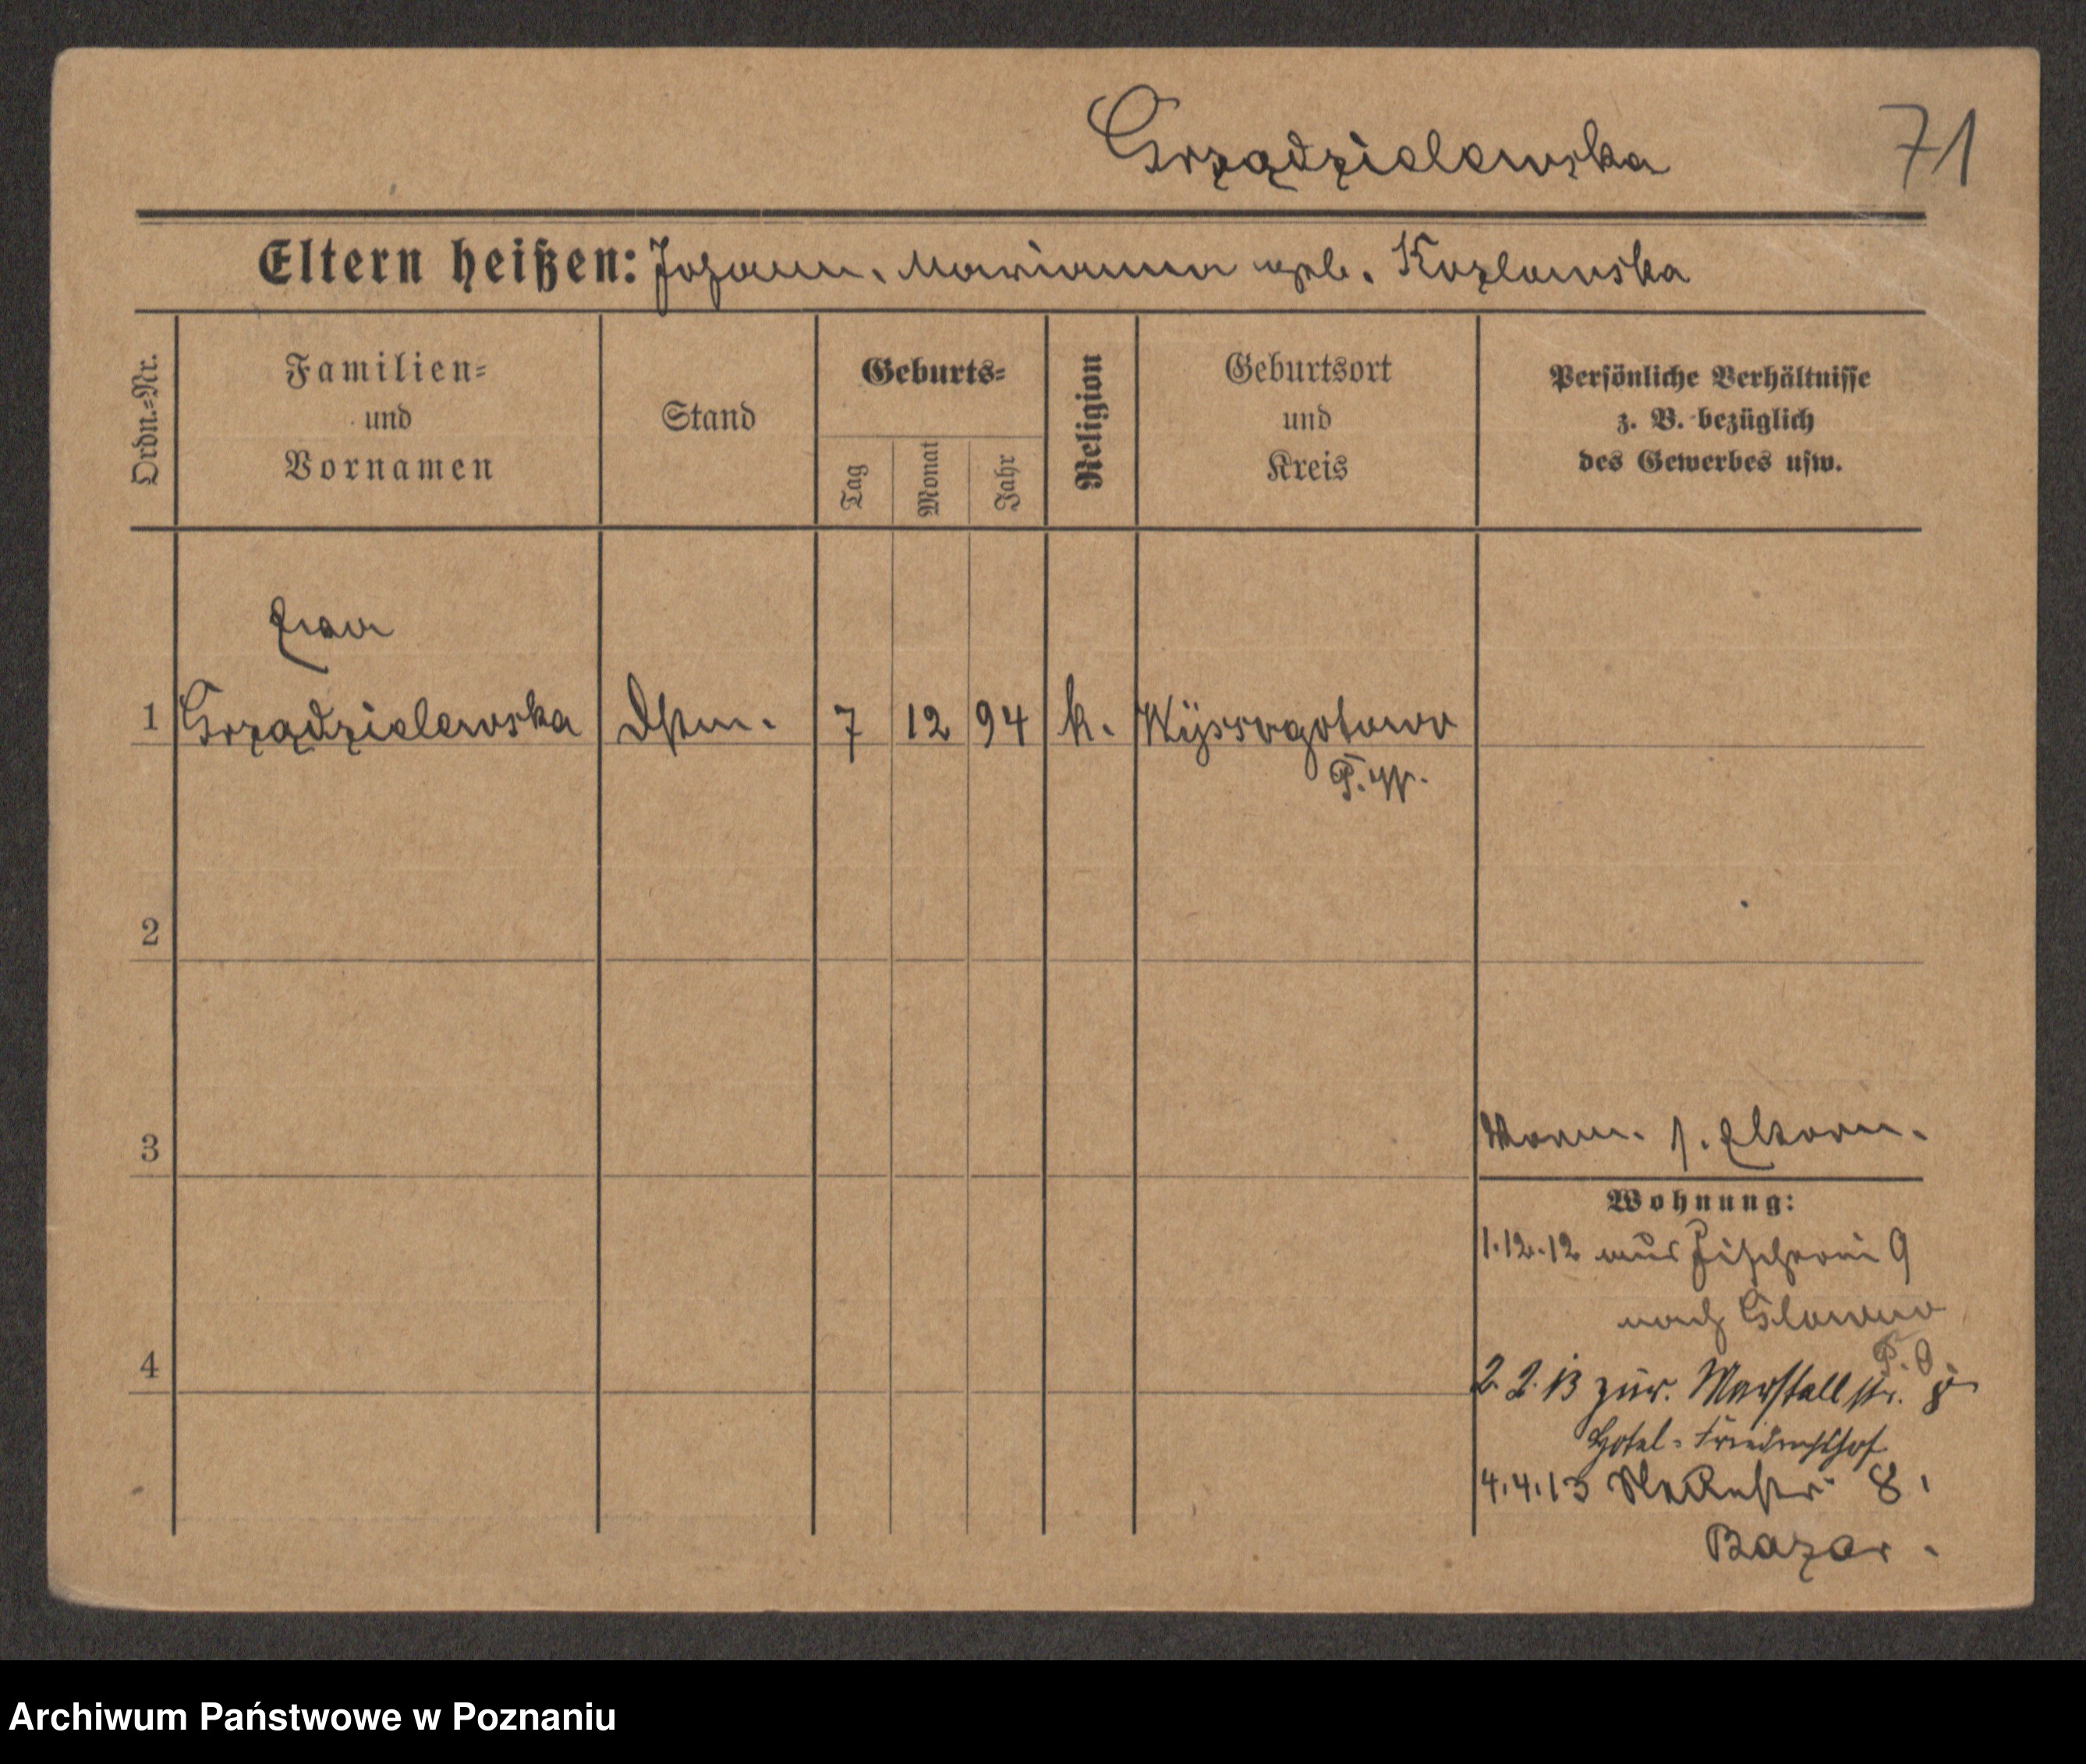 Grządzielewska 71
Eltern heißen: Johann, Marianna geb. Kozlowska
Ordn.-Nr.
Familien-
und
Vornamen
Stand
Geburts-
Tag
Monat
Jahr
Religion
Geburtsort
und
Kreis
Persönliche Verhältnisse
z. B. bezüglich
des Gewerbes usw.
1 Grządzielewska Dstm. 7 12 94 k. Wyssogotowo
P.W.
2
3
s. Eltern.
Wohnung:
1.12.12 aus Fischerei 9
nach Glowno
P.O.
4
2.2.13 zur. Marstallstr. 8
Hotel-Friedrichshof
4.4.13 8.
Bazar.
Archiwum Państwowe w Poznaniu